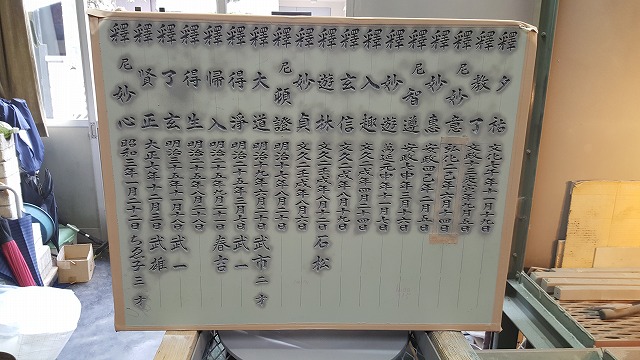 釋 夕祐 文化七年十一月十九日
釋 教了 文政十三寅年九月五日
釋 尼妙意 弘化二巳年八月十四日
釋 妙憙 安政四巳年二月五日
釋 尼智遵 安政六申年二月十三日
釋 妙遊 萬延元申年十一月七日
釋 入趣 文久二戌年四月十四日
釋 玄信 文久二壬戌年八月十九日
釋 遊林 文久二壬戌年八月十二日 石松
釋 妙貞 文久二壬戌年八月六日
釋 尼頓證 明治十六年八月二十二日
釋 大道 明治十九年八月二十日 武市 二才
釋 得淨 明治二十五年三月十七日 武一
釋 帰入 明治二十五年八月二十日 春吉
釋 得生 明治三十五年八月二十八日
釋 了玄 明治三十五年八月十六日 武一
釋 賢正 大正七年十二月三日 武雄
釋 尼妙心 昭和三年一月二十三日 ちえ子 三才